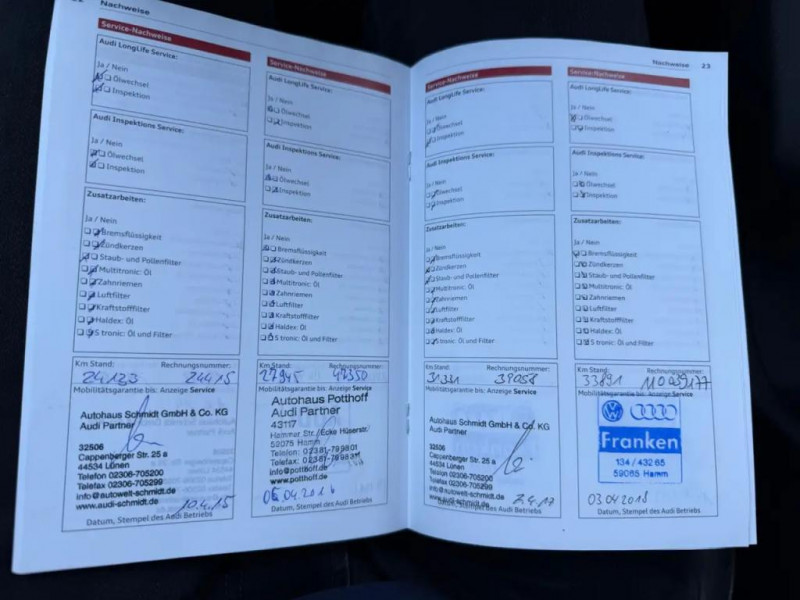 Nachweise
Service-Nachweise
Audi LongLife Service:
Ja / Nein
Ölwechsel
Inspektion
Audi Inspektions Service:
Ja / Nein
Ölwechsel
Inspektion
Zusatzarbeiten:
Ja / Nein
Bremsflüssigkeit
Zündkerzen
Staub- und Pollenfilter
Multitronic: Öl
Zahnriemen
Luftfilter
Kraftstofffilter
Haldex: Öl
S tronic: Öl und Filter
Km Stand: Rechnungsnummer:
24133 24415
Mobilitätsgarantie bis: Anzeige Service
Autohaus Schmidt GmbH & Co. KG
Audi Partner
32506
Cappenberger Str. 25 a
44534 Lünen
Telefon 02306-705200
Telefax 02306-705299
info@autowelt-schmidt.de
www.audi-schmidt.de
10.4.15
Datum, Stempel des Audi Betriebs
Service-Nachweise
Audi LongLife Service:
Ja / Nein
Ölwechsel
Inspektion
Audi Inspektions Service:
Ja / Nein
Ölwechsel
Inspektion
Zusatzarbeiten:
Ja / Nein
Bremsflüssigkeit
Zündkerzen
Staub- und Pollenfilter
Multitronic: Öl
Zahnriemen
Luftfilter
Kraftstofffilter
Haldex: Öl
S tronic: Öl und Filter
Km Stand: Rechnungsnummer:
27945 47350
Mobilitätsgarantie bis: Anzeige Service
Autohaus Potthoff
Audi Partner
43117
Hammer Str./Ecke Hüserstr.
52075 Hamm
Telefon
Telefax:
info@potthoff.de
www.potthoff.de
06.04.2016
Datum, Stempel des Audi Betriebs
Nachweise 23
Service-Nachweise
Audi LongLife Service:
Ja / Nein
Ölwechsel
Inspektion
Audi Inspektions Service:
Ja / Nein
Ölwechsel
Inspektion
Zusatzarbeiten:
Ja / Nein
Bremsflüssigkeit
Zündkerzen
Staub- und Pollenfilter
Multitronic: Öl
Zahnriemen
Luftfilter
Kraftstofffilter
Haldex: Öl
S tronic: Öl und Filter
Km Stand: Rechnungsnummer:
31331 39058
Mobilitätsgarantie bis: Anzeige Service
Autohaus Schmidt GmbH & Co. KG
Audi Partner
32506
Cappenberger Str. 25 a
44534 Lünen
Telefon 02306-705200
Telefax 02306-705299
info@autowelt-schmidt.de
www.audi-schmidt.de
7.4.17
Datum, Stempel des Audi Betriebs
Service-Nachweise
Audi LongLife Service:
Ja / Nein
Ölwechsel
Inspektion
Audi Inspektions Service:
Ja / Nein
Ölwechsel
Inspektion
Zusatzarbeiten:
Ja / Nein
Bremsflüssigkeit
Zündkerzen
Staub- und Pollenfilter
Multitronic: Öl
Zahnriemen
Luftfilter
Kraftstofffilter
Haldex: Öl
S tronic: Öl und Filter
Km Stand: Rechnungsnummer:
33891 110939177
Mobilitätsgarantie bis: Anzeige Service
Franken
134 / 432 65
59065 Hamm
03.04.2018
Datum, Stempel des Audi Betriebs